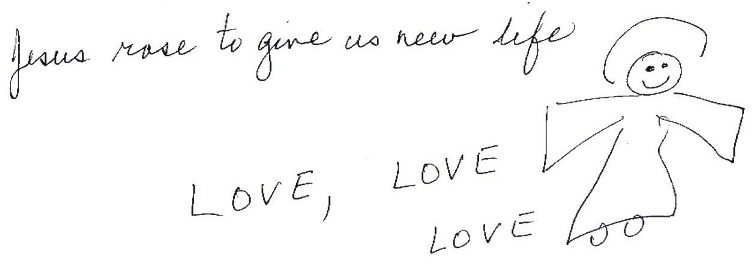 Jesus rose to give us new life
LOVE, LOVE
LOVE